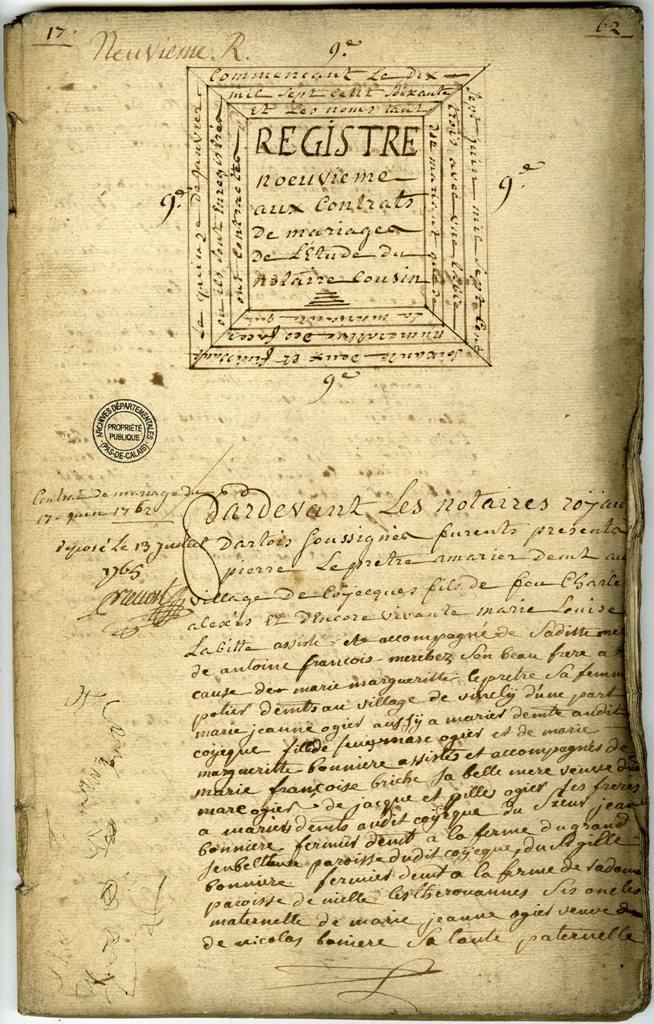 17.
62
Neuvieme. R.
9e
Commencant Le dix
sept juin mil sept cent
soixante deux et finissant
Le quinze de janvier
mil sept cent soixante
trois avec une table
numerative des faces
ou ils sont Enregistrés
et Les noms tant
du mariant que de
La mariante qui
ont contractés
9e
9e
REGISTRE
noeuvieme
aux Contrats
de mariages
de L'Etude du
notaire Cousin
9e
ARCHIVES DÉPARTEMENTALES
PROPRIÉTÉ
PUBLIQUE
(PAS-DE-CALAIS)
Contrat de mariage du
17 juin 1762
deposé Le 13 juillet
1765
Pardevant Les notaires royau
Dartois soussignés furents presents
pierre Lepretre amarier demt au
village de Coyecques fils de feu Charle
alexis et d'Encore vivante marie Louise
Labitte assisté et accompagné de Saditte mere
de antoine francois merchez son beau frere a
cause de marie margueritte lepretre sa femme
demts au village de vincly d'une part
marie jeanne ogier aussy a marier demte audit
coyeque fille de feu marc ogier et de marie
margueritte bonniere assistés et accompagnés de
marie francoise briche sa belle mere veuve du
marc ogier de jacque et gilles ogier ses freres
a mariers demts audit coyeque du sieur jean
bonniere fermier demt a la ferme du grand
paroisse dudit coyeque du Sr gille
bonniere fermier demt a la ferme de
paroisse de nielle les therouannes ses oncles
maternelle de marie jeanne ogier veuve de
de nicolas boniere sa tante paternelle